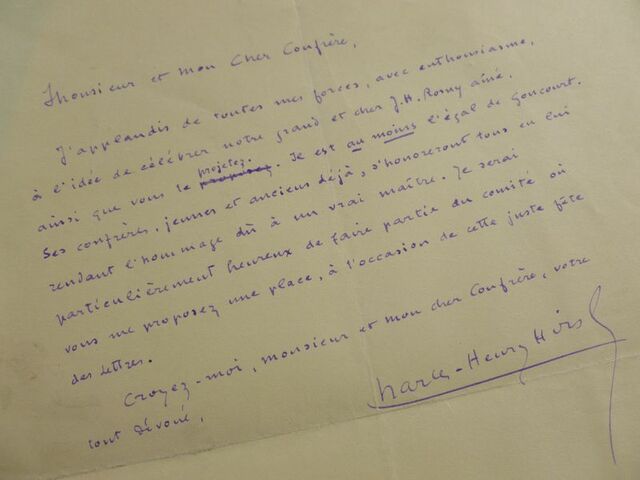 Monsieur et mon Cher Confrère,
J'applaudis de toutes mes forces, avec enthousiasme,
à l'idée de célébrer notre grand et cher J.H. Rosny aîné.
projetez.
ainsi que vous le proposez. Il est au moins l'égal de Goncourt.
Ses confrères, jeunes et anciens déjà, s'honoreront tous en lui
rendant l'hommage dû à un vrai maître. Je serai
particulièrement heureux de faire partie du comité où
vous me proposez une place, à l'occasion de cette juste fête
des lettres.
Croyez-moi, monsieur et mon cher Confrère, votre
tout dévoué,
Charles-Henry Hirsch